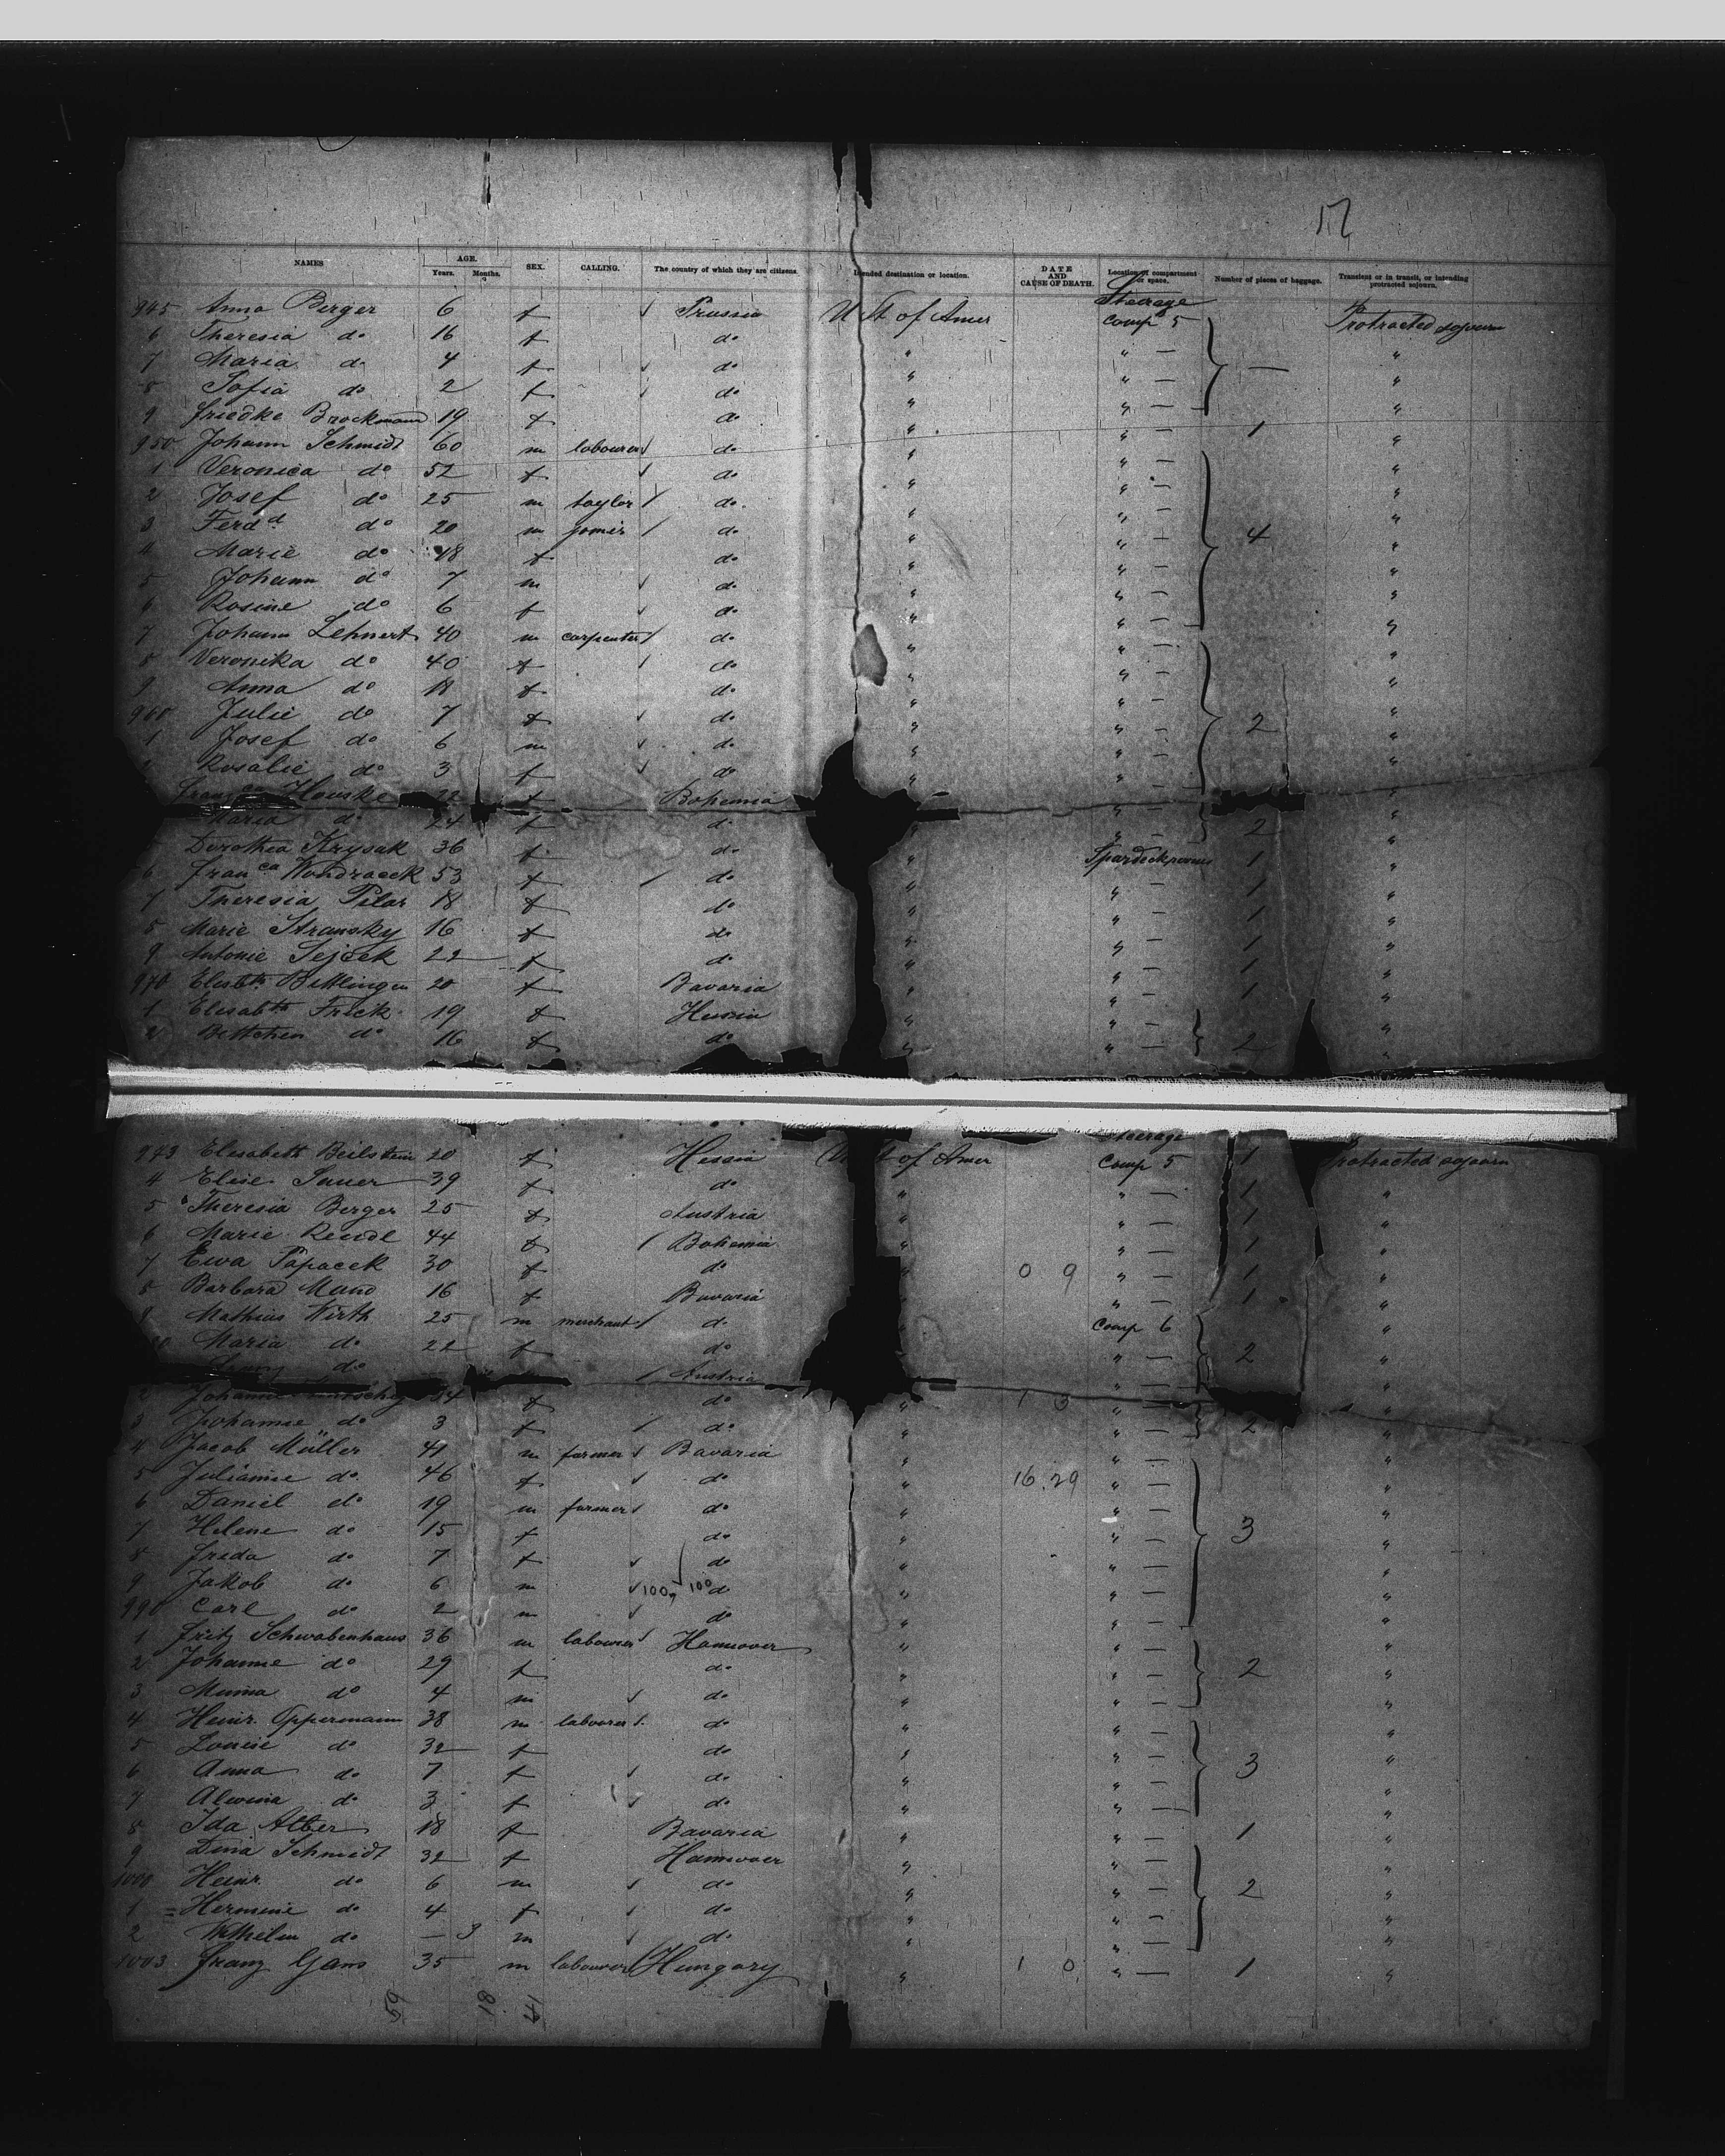 17
NAMES AGE. Years. Months. SEX. CALLING. The country of which they are citizens. Intended destination or location. DATE AND CAUSE OF DEATH. Location of compartment or space. Number of pieces of baggage. Transient or in transit, or intending protracted sojourn.
Steerage
945 Anna Berger 6 f ✓ Prussia U St of Amer Comp 5 Protracted sojourn
6 Theresia do 16 f do " " — "
7 Maria do 4 f ✓ do " " — — "
8 Sofia do 2 f ✓ do " " — "
9 Friedke Brockmann 19 f do " " — 1 "
950 Johann Schmidt 60 m labourer ✓ do " " — "
1 Veronica do 52 f ✓ do " " — "
2 Josef do 25 m taylor / do " " — "
3 Ferdd do 20 m / do " " — 4 "
4 Marie do 18 f do " " — "
5 Johann do 7 m ✓ do " " — "
6 Rosine do 6 f ✓ do " " — "
7 Johann Lehnert 40 m carpenter / do " " — "
8 Veronika do 40 f / do " " — "
9 Anna do 18 f do " " — "
960 Julie do 7 f ✓ do " " — 2 "
1 Josef do 6 m ✓ do " " — "
Rosalie do 3 f ✓ do " " — "
22 f Bohemia " — "
Maria do 24 f do " — 2 "
Dorothea Krysak 36 f do " Spardeckroom 1 "
6 Franca Wondracek 53 f / do " " — 1 "
7 Theresia Pilar 18 f do " " — 1 "
8 Marie Stransky 16 f do " " — 1 "
9 Antonie Sejcek 22 f do " " — 1 "
970 Elisbth Bittlingen 20 f Bavaria " " — 1 "
1 Elisabth Frick 19 f Hessia " " — "
2 Bettchen do 16 f do " " — 2 "
Steerage
973 Elisabeth Beilstein 20 f Hessia St of Amer Comp 5 1 Protracted sojourn
4 Elise Sauer 39 f do " " — 1 "
5 Theresia Berger 25 f Austria " " — 1 "
6 Marie Rendl 44 f / Bohemia " " — 1 "
7 Ewa Papacek 30 f do " 0 9 " — 1 "
8 Barbara Mund 16 f Bavaria " — 1 "
9 Mathias Wirth 25 m merchant / do Comp 6 "
Maria do 22 f do " — 2 "
do / Austria " — "
2 Johanna 34 f do " 1 3 " — "
3 Johanne do 3 f / do " " — 2 "
4 Jacob Müller 41 m farmer ✓ Bavaria " " — "
5 Julianne do 46 f ✓ do " 16.29 " — "
6 Daniel do 19 m farmer ✓ do " " — "
7 Helene do 15 f do " " — 3 "
8 Freda do 7 f ✓ do " " — "
9 Jakob do 6 m ✓ 100 100 do " " — "
990 Carl do 2 m ✓ do " " — "
1 Fritz Schwabenhaus 36 m labourer ✓ Hannover " " — "
2 Johanne do 29 f do " " — 2 "
3 do 4 m ✓ do " " — "
4 Heinr. Oppermann 38 m labourer ✓ do " " — "
5 Louise do 32 f do " " — "
6 Anna do 7 f ✓ do " " — 3 "
7 Alwina do 3 f ✓ do " " — "
8 Ida Alber 18 f Bavaria " " — 1 "
9 Dina Schmidt 32 f Hannover " " — "
1000 Heinr. do 6 m ✓ do " " — 2 "
1 Hermine do 4 f ✓ do " " — "
2 Wilhelm do — 3 m ✓ do " " — "
1003 Franz Gans 35 m labourer Hungary " 1 0 " — 1 "
59 18 41